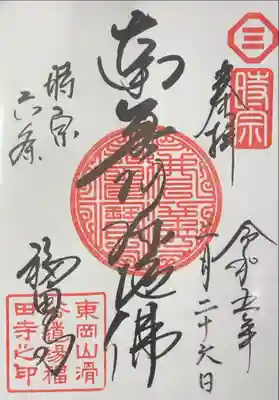 三
時宗
奉拝
令和五年
月二十六日
南無阿弥陀佛
時宗
六条
福田寺
東岡山滑
谷
福
田寺之印